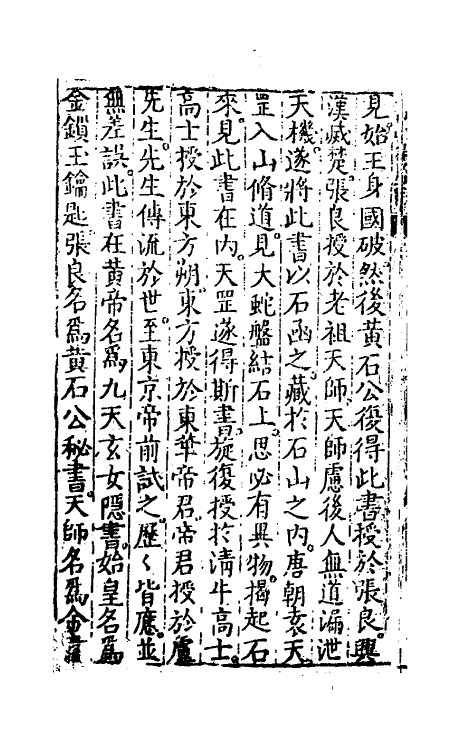 見始王身國破然後黄石公復得此書授於張良興
漢滅楚張良授於老祖天師天師慮後人無道漏泄
天機遂將此書以石函之藏於石山之内唐朝袁天
罡入山脩道見大蛇盤結石上思必有異物揭起石
來見此書在内天罡遂得斯書旋復授於清牛高士
高士授於東方朔東方授於東華帝君帝君授於盧
先生先生傳流於世至東京帝前試之歷〻皆應並
無差誤此書在黄帝名爲九天玄女隱書始皇名爲
金鎖玉鑰匙張良名爲黄石公秘書天師名爲金